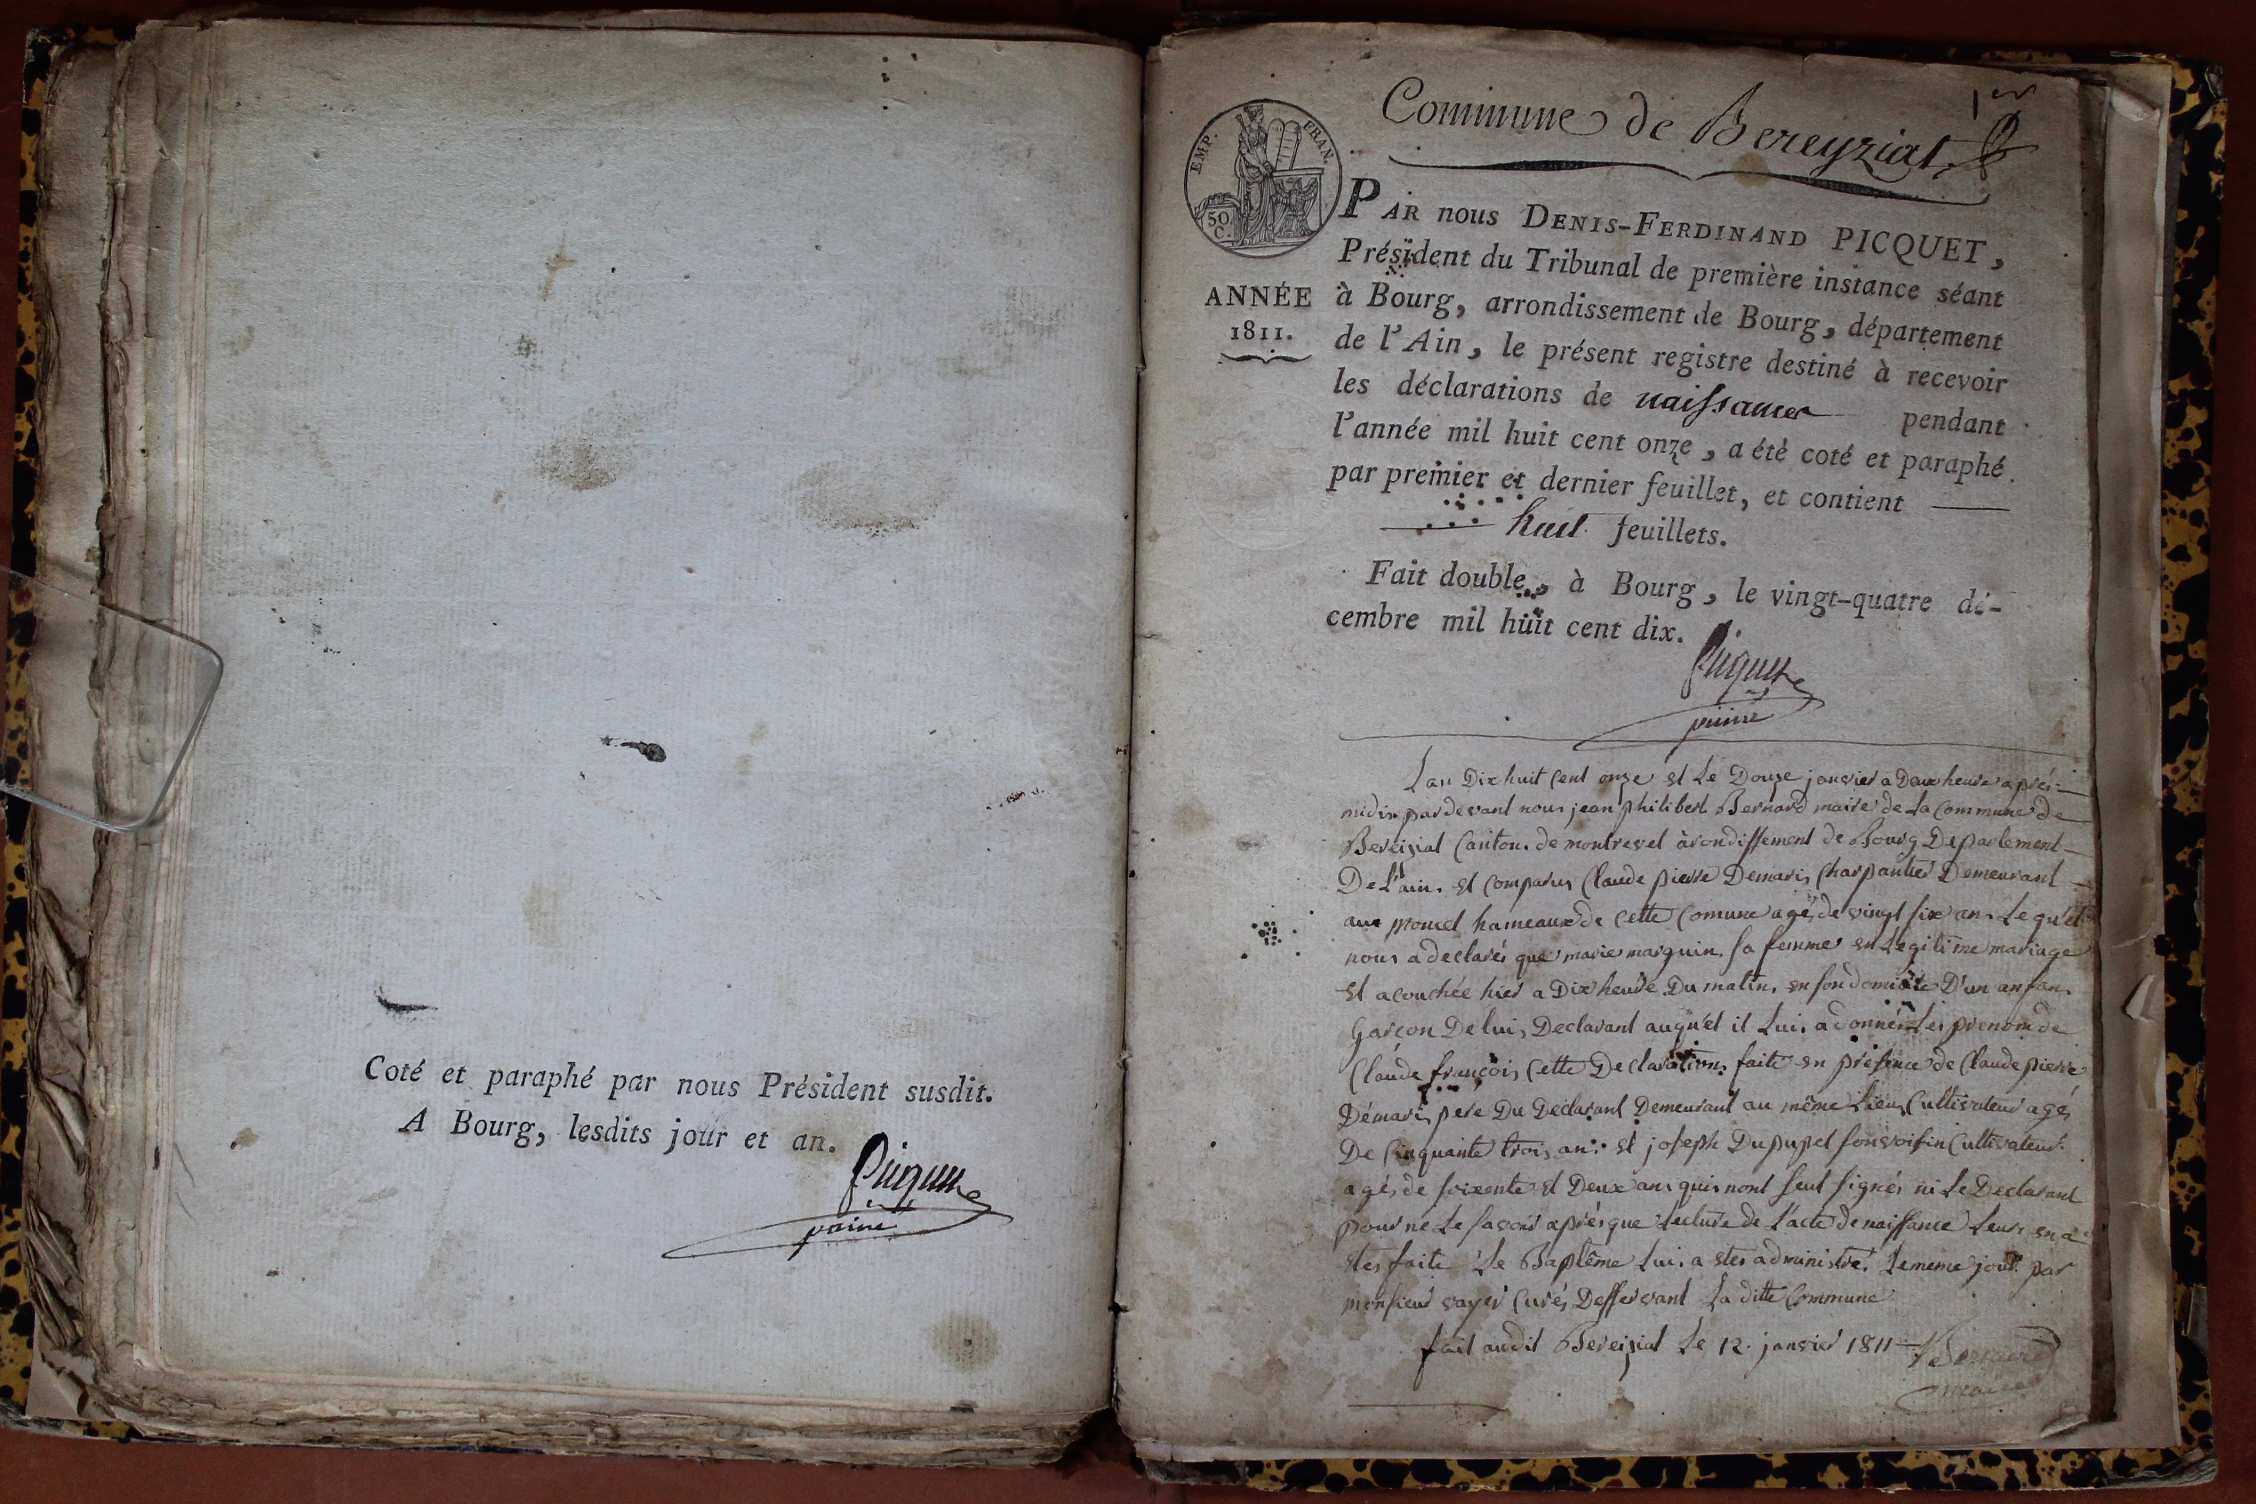 Coté et paraphé par nous Président susdit.
A Bourg, lesdits jour et an.
Picquet
1er
Commune de Bereyziat
EMP. FRAN.
50
C.
ANNÉE
1811.
PAR nous DENIS-FERDINAND PICQUET,
Président du Tribunal de première instance séant
à Bourg, arrondissement de Bourg, département
de l'Ain, le présent registre destiné à recevoir
les déclarations de naissances pendant
l'année mil huit cent onze, a été coté et paraphé
par premier et dernier feuillet, et contient
huit feuillets.
Fait double, à Bourg, le vingt-quatre dé-
cembre mil huit cent dix.
Picquet
Lan Dix huit Cent onze et Le Douze janvier a Deux heure aprés
midis pardevant nous jean philibert Bernard maire de La Commune de
Bereizial Canton de montrevel àrondissement de Bourg Departement
De L'ain. et Comparus Claude pierre Demaris Charpantier Demeurant
aux moncel hameaux de Cette Comune agés de vingt six an. Le qu'el
nous a declarés que marie marguin. sa femme en Legitime mariage
et acouchée hier a Dix heure Du matin. en son domicile D'un anfan.
Garçon De lui, Declarant auqu'el il Lui. a donnés Les prenom de
Claude françois Cette Declaration, faite en presence de Claude pierre
Démaris pere Du Declarant Demeurant au même Lieu, Cultivateur agés
De Cinquante trois an. et joseph Dupupet son voisin Cultivateur.
agés de soixente et Deux ans qui nont seut signés ni Le Declarant
pour ne Le savoir aprés que Lecture de L'acte de naissance Leurs en a
etes faite Le Baptême Lui. a etes administré. Le meme jour par
monsieur Curés Desservant La ditte Commune
fait audit Bereizial Le 12. janvier 1811
Bernard
maire